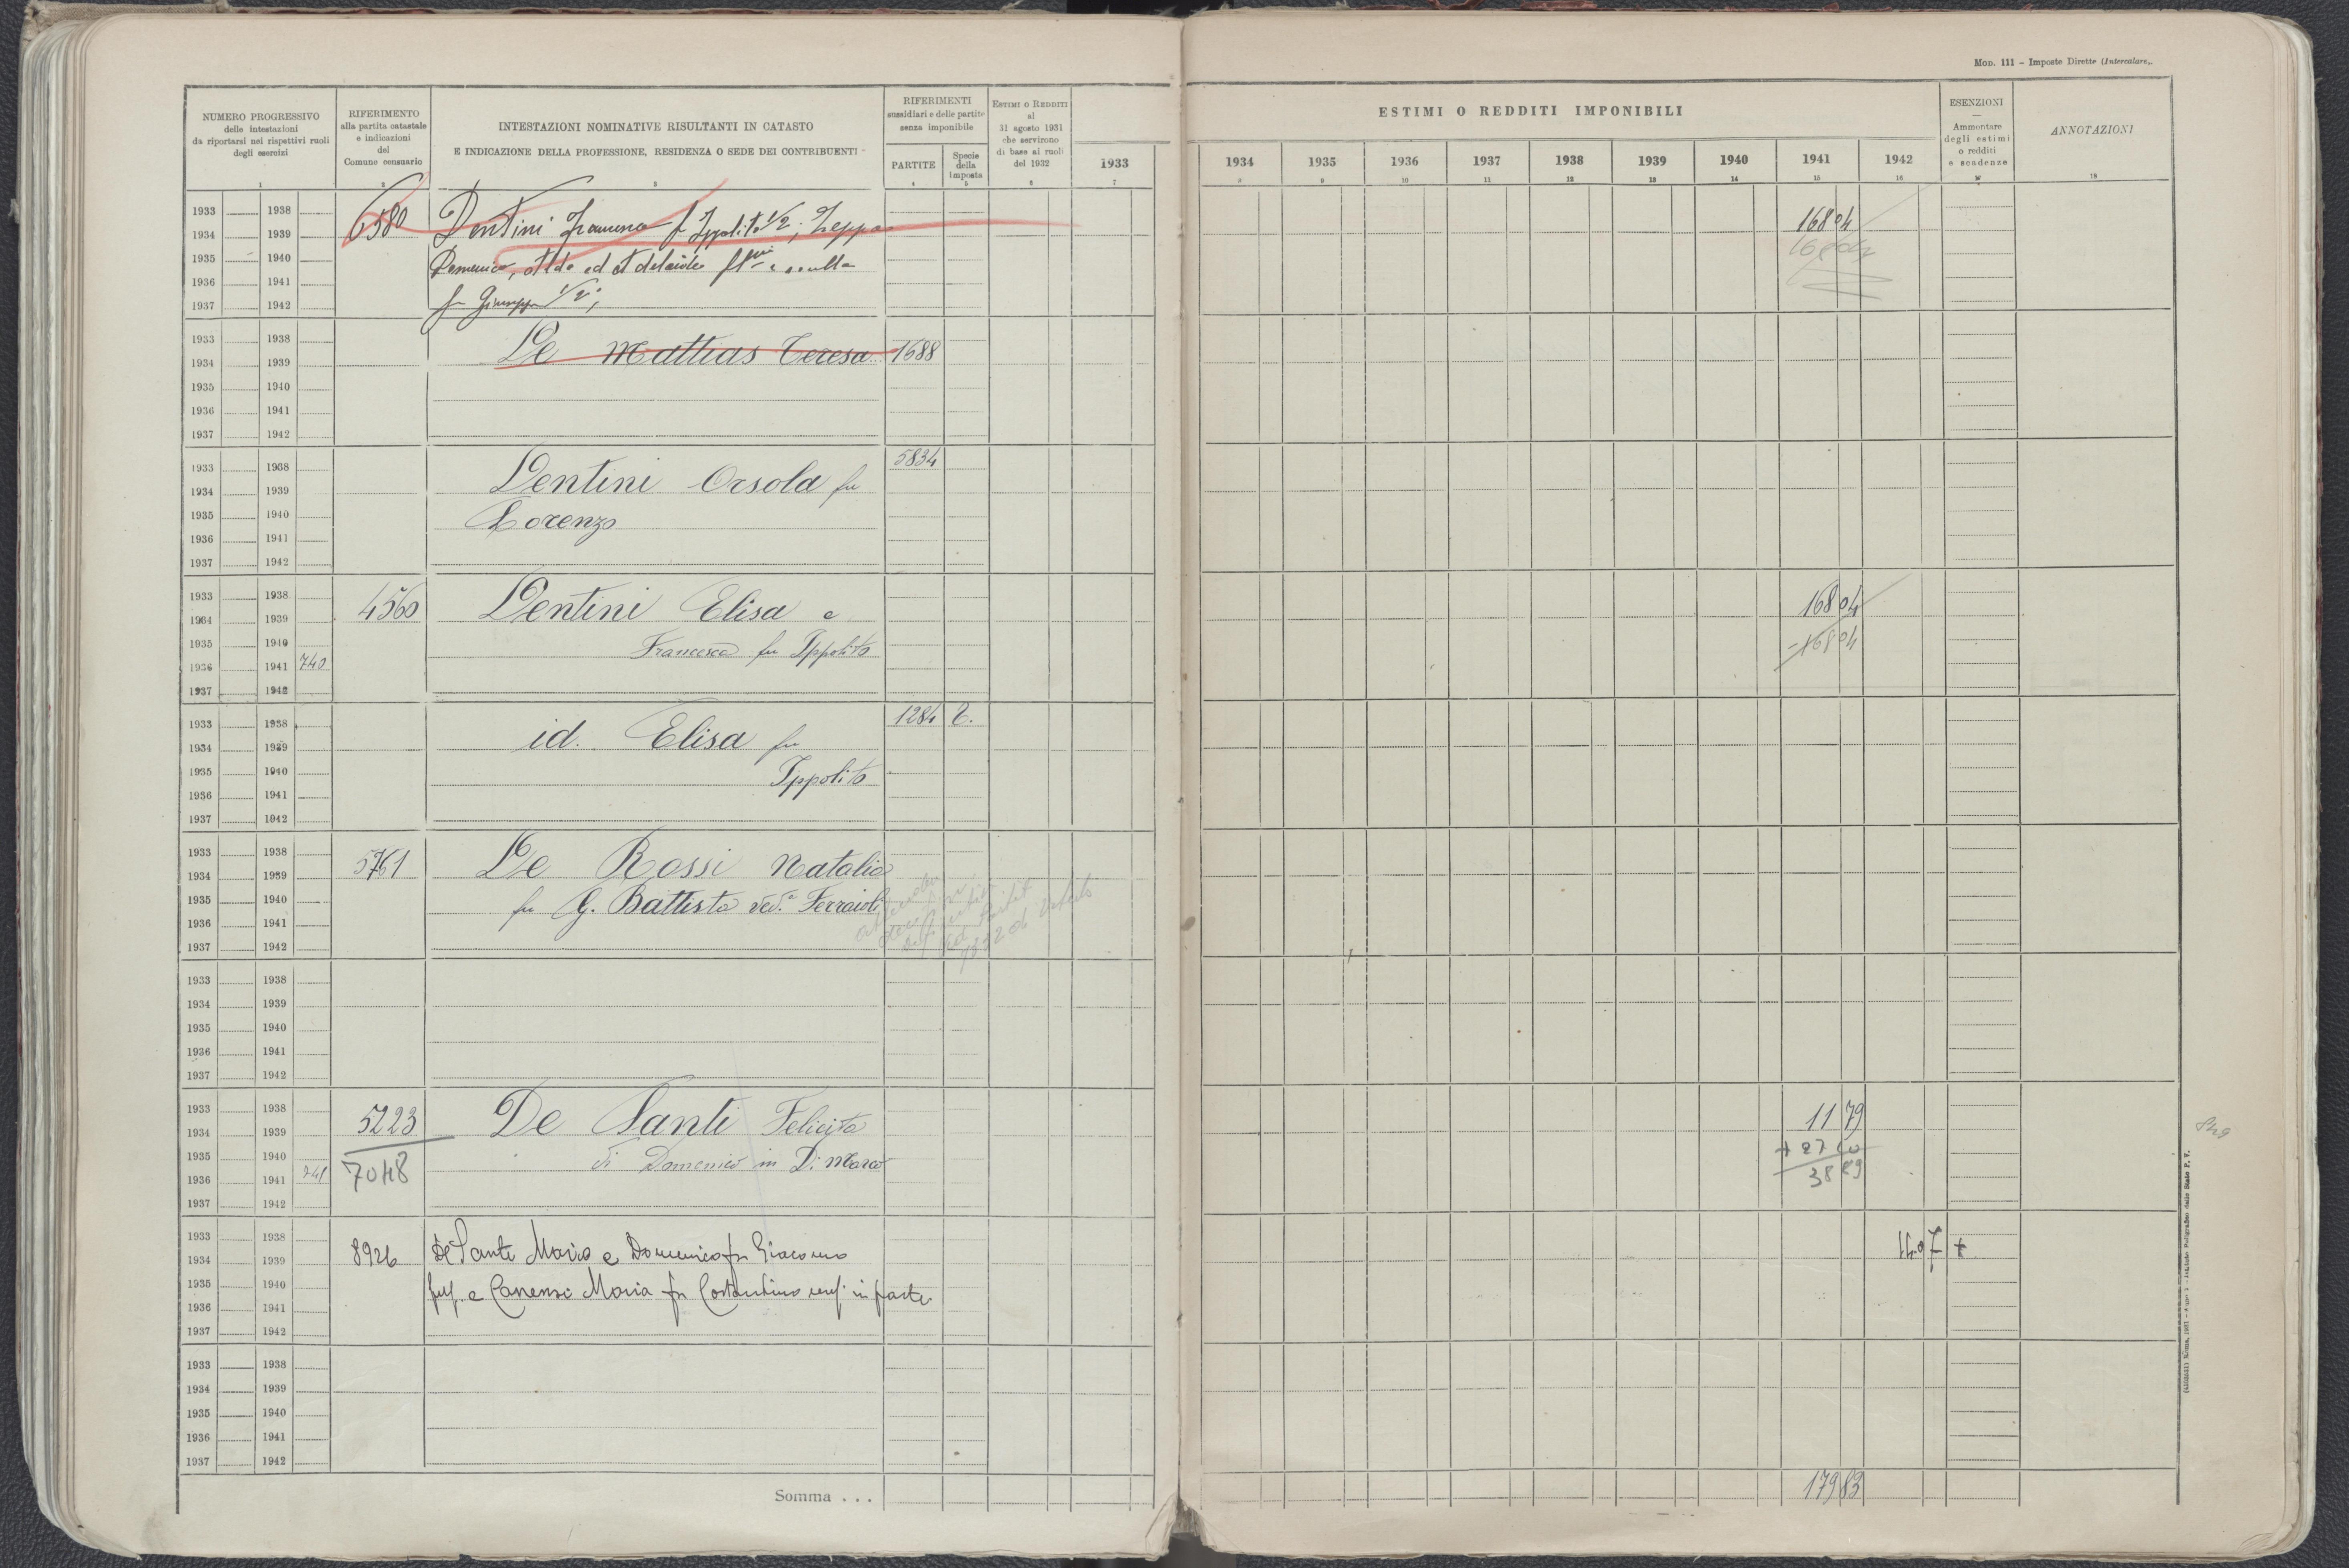 MOD. 111 – Imposte Dirette (Intercalare).
NUMERO PROGRESSIVO
delle intestazioni
da riportarsi nei rispettivi ruoli
degli esercizi
1
RIFERIMENTO
alla partita catastale
e indicazioni
del
Comune censuario
2
INTESTAZIONI NOMINATIVE RISULTANTI IN CATASTO
E INDICAZIONE DELLA PROFESSIONE, RESIDENZA O SEDE DEI CONTRIBUENTI
3
RIFERIMENTI
sussidiari e delle partite
senza imponibile
PARTITE
4
Specie
della
imposta
5
ESTIMI O REDDITI
al
31 agosto 1931
che servirono
di base ai ruoli
del 1932
6
1933
7
ESTIMI O REDDITI IMPONIBILI
1934 1935 1936 1937 1938 1939 1940 1941 1942
8 9 10 11 12 13 14 15 16
ESENZIONI
—
Ammontare
degli estimi
o redditi
e scadenze
17
ANNOTAZIONI
18
1933 1938
6580 Dentini Francesca f Ippolito 1/2; Zeppa 16804
1934 1939
16804
1935 1940
Domenico, ed Adelaide
1936 1941
1937 1942
fu Giuseppe 1/2;
1933 1938
De Mattias Teresa 1688
1934 1939
1935 1940
1936 1941
1937 1942
5834
1933 1938
Dentini Orsola fu
1934 1939
1935 1940
Lorenzo
1936 1941
1937 1942
1933 1938
4560 Dentini Elisa e 16804
1934 1939
1935 1940
Francesca fu Ippolito -16804
1936 1941 740
1937 1942
1284 T.
1933 1938
id. Elisa fu
1934 1939
1935 1940
Ippolito
1936 1941
1937 1942
1933 1938
5761 De Rossi Natalia
1934 1939
1935 1940
fu G. Battista ved.a Ferraioli
1936 1941
1937 1942
1933 1938
1934 1939
1935 1940
1936 1941
1937 1942
1933 1938
5223 De Santi Felicita 1179
1934 1939
1935 1940
+2710
7048 di Domenico in Di Marco
1936 1941 741
3889
1937 1942
1933 1938
8926 De Santi Mario e Domenico fu Giacomo 1407 +
1934 1939
1935 1940
e Canensi Maria fu Costantino usuf. in parte
1936 1941
1937 1942
1933 1938
1934 1939
1935 1940
1936 1941
1937 1942
Somma . . . 17983